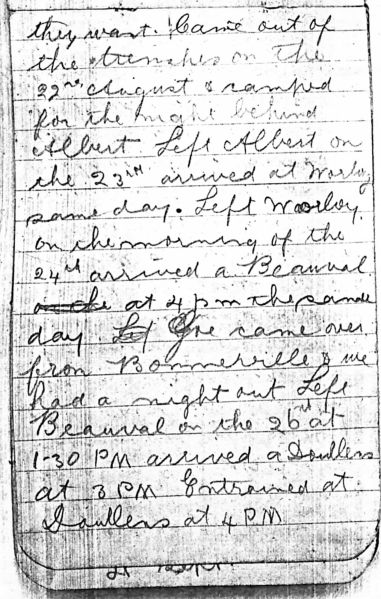 they want. Came out of
the trenches on the
22nd August & camped
for the night behind
Albert Left Albert on
the 23rd arrived at Warloy
same day. Left Warloy
on the morning of the
24th arrived a Beauval
at 4 pm the same
day Joe came over
from Bonnerville & we
had a night out Left
Beauval on the 26th at
1-30 PM arrived a Doullens
at 3 PM Entrained at
Doullens at 4 PM